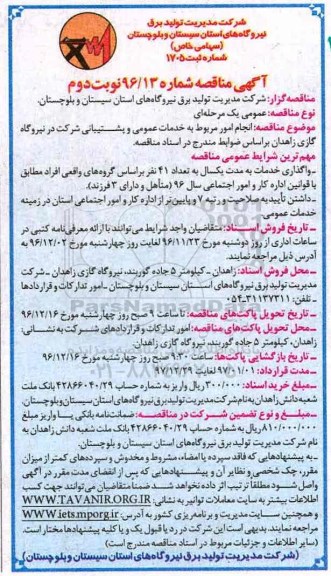 شرکت مدیریت تولید برق
نیروگاه‌های استان سیستان و بلوچستان
(سهامی خاص)
شماره ثبت ۱۷۰۵
آگهی مناقصه شماره ۹۶/۱۳ نوبت دوم
مناقصه‌گزار: شرکت مدیریت تولید برق نیروگاه‌های استان سیستان و بلوچستان.
نوع مناقصه: عمومی یک مرحله‌ای
موضوع مناقصه: انجام امور مربوط به خدمات عمومی و پشتیبانی شرکت در نیروگاه
گازی زاهدان براساس ضوابط مندرج در اسناد مناقصه.
مهم‌ترین شرایط عمومی مناقصه
-واگذاری خدمات به مدت یکسال به تعداد ۴۱ نفر براساس گروه‌های واقعی افراد مطابق
با قوانین اداره کار و امور اجتماعی سال ۹۶ (متأهل و دارای ۲ فرزند).
-داشتن تأییدیه صلاحیت و رتبه ۷ و پایین‌تر از اداره کار و امور اجتماعی استان در زمینه
خدمات عمومی.
ـ تاریخ فروش اسناد: متقاضیان واجد شرایط می‌توانند با ارائه معرفی‌نامه کتبی در
ساعات اداری از روز دوشنبه مورخ ۹۶/۱۱/۲۳ لغایت روز چهارشنبه مورخ ۹۶/۱۲/۰۲ به
آدرس ذیل مراجعه نمایند.
ـ محل فروش اسناد: زاهدان ـ کیلومتر ۵ جاده گوربند، نیروگاه گازی زاهدان ـ شرکت
مدیریت تولید برق نیروگاه‌های استان سیستان و بلوچستان ـ امور تدارکات و قراردادها
ـ تلفن: ۳۱۱۳۷۳۱۱-۰۵۴
ـ تاریخ تحویل پاکت‌های مناقصه: تا ساعت ۹ صبح روز چهارشنبه مورخ ۹۶/۱۲/۱۶
ـ محل تحویل پاکت‌های مناقصه: امور تدارکات و قراردادهای شرکت به نشانی:
زاهدان، کیلومتر ۵ جاده گوربند، نیروگاه گازی زاهدان.
ـ تاریخ بازگشایی پاکت‌ها: ساعت ۹:۳۰ صبح روز چهارشنبه مورخ ۹۶/۱۲/۱۶
ـ مدت قرارداد: ۹۷/۰۱/۰۱ لغایت ۹۷/۱۲/۲۹
ـ مبلغ خرید اسناد: ۳۰۰/۰۰۰ ریال واریز به شماره حساب ۴۲۸۶۶۰۴۰/۲۹ بانک ملت
شعبه دانش زاهدان به نام شرکت مدیریت تولید برق نیروگاه‌های استان سیستان و بلوچستان.
ـ مبلغ و نوع تضمین شرکت در مناقصه: ضمانت‌نامه بانکی یا واریز مبلغ
۸۱۰/۰۰۰/۰۰۰ ریال به شماره حساب ۴۲۸۶۶۰۴۰/۲۹ بانک ملت شعبه دانش زاهدان به
نام شرکت مدیریت تولید برق نیروگاه‌های استان سیستان و بلوچستان.
ـ به پیشنهادهایی که فاقد سپرده یا امضاء، مشروط و مخدوش و سپرده‌های کمتر از میزان
مقرر، چک شخصی و نظایر آن و پیشنهادهایی که پس از انقضای مدت مقرر در آگهی
واصل شود مطلقاً ترتیب اثر داده نخواهد شد. ضمناً متقاضیان می‌توانند جهت کسب
اطلاعات بیشتر به سایت معاملات توانیر به نشانی: WWW.TAVANIR.ORG.IR
و همچنین سایت مدیریت و برنامه‌ریزی کشور به آدرس: WWW.iets.mporg.ir
مراجعه نمایند. بدیهی است این شرکت در رد یا قبول یک و یا کلیه پیشنهادها مختار است.
(سایر اطلاعات و جزئیات مربوط در اسناد مناقصه مندرج است)
(شرکت مدیریت تولید برق نیروگاه‌های استان سیستان و بلوچستان)